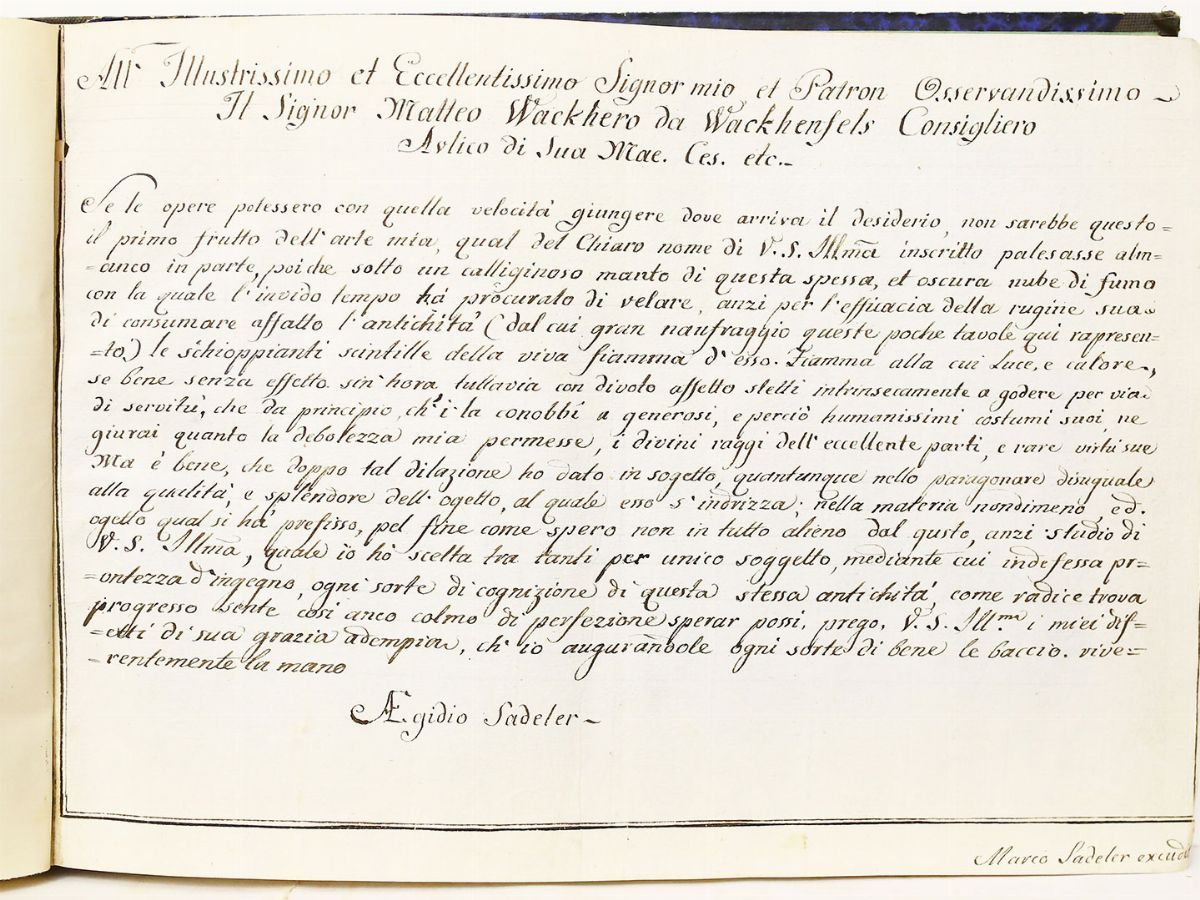 All' Illustrissimo et Eccellentissimo Signor mio, et Patron Osservandissimo
Il Signor Matteo Wackhero da Wackhenfels Consigliero
Avlico di Sua Mae. Ces. etc.
Se le opere potessero con quella velocità giungere dove arriva il desiderio, non sarebbe questo=
il primo frutto dell'arte mia, qual del Chiaro nome di V. S. Illma inscritto palesasse alm=
=anco in parte, poiche sotto un calliginoso manto di questa spessa, et oscura nube di fumo
con la quale l'invido tempo há procurato di velare, anzi per l'efficacia della rugine sua
di consumare affatto l'antichità (dal cui gran naufraggio queste poche tavole qui rapresen=
=to) le schioppianti scintille della viva fiamma d'esso. Fiamma alla cui Luce, e calore,
se bene senza effetto sin'hora tuttavia con divoto affetto stetti intrinsecamente a godere per via
di servitù, che da principio, ch'i la conobbi a generosi, e perciò humanissimi costumi suoi, ne
giurai quanto la debolezza mia permesse, i divini raggi dell'eccellente parti, e rare virtù sue
Ma è bene, che doppo tal dilazione ho dato in sogetto, quantunque nello paragonare disuguale
alla qualità, e splendore dell'ogetto, al quale esso s'indrizza; nella materia nondimeno, ed
ogetto qual si há prefisso, pel fine come spero non in tutto alieno dal gusto, anzi studio di
V. S. Illma, quale iò hó scelta tra tanti per unico soggetto, mediante cui indefessa pr=
=ontezza d'ingegno, ogni sorte di cognizione di questa stessa antichità, come radice trova
progresso sente cosi anco colmo di perfezione sperar possi, prego, V. S. Illma i miei dif=
=etti di sua grazia adempir, ch'io augurandole ogni sorte di bene le baccio. rive=
=rentemente la mano
Ægidio Sadeler
Marco Sadeler excud